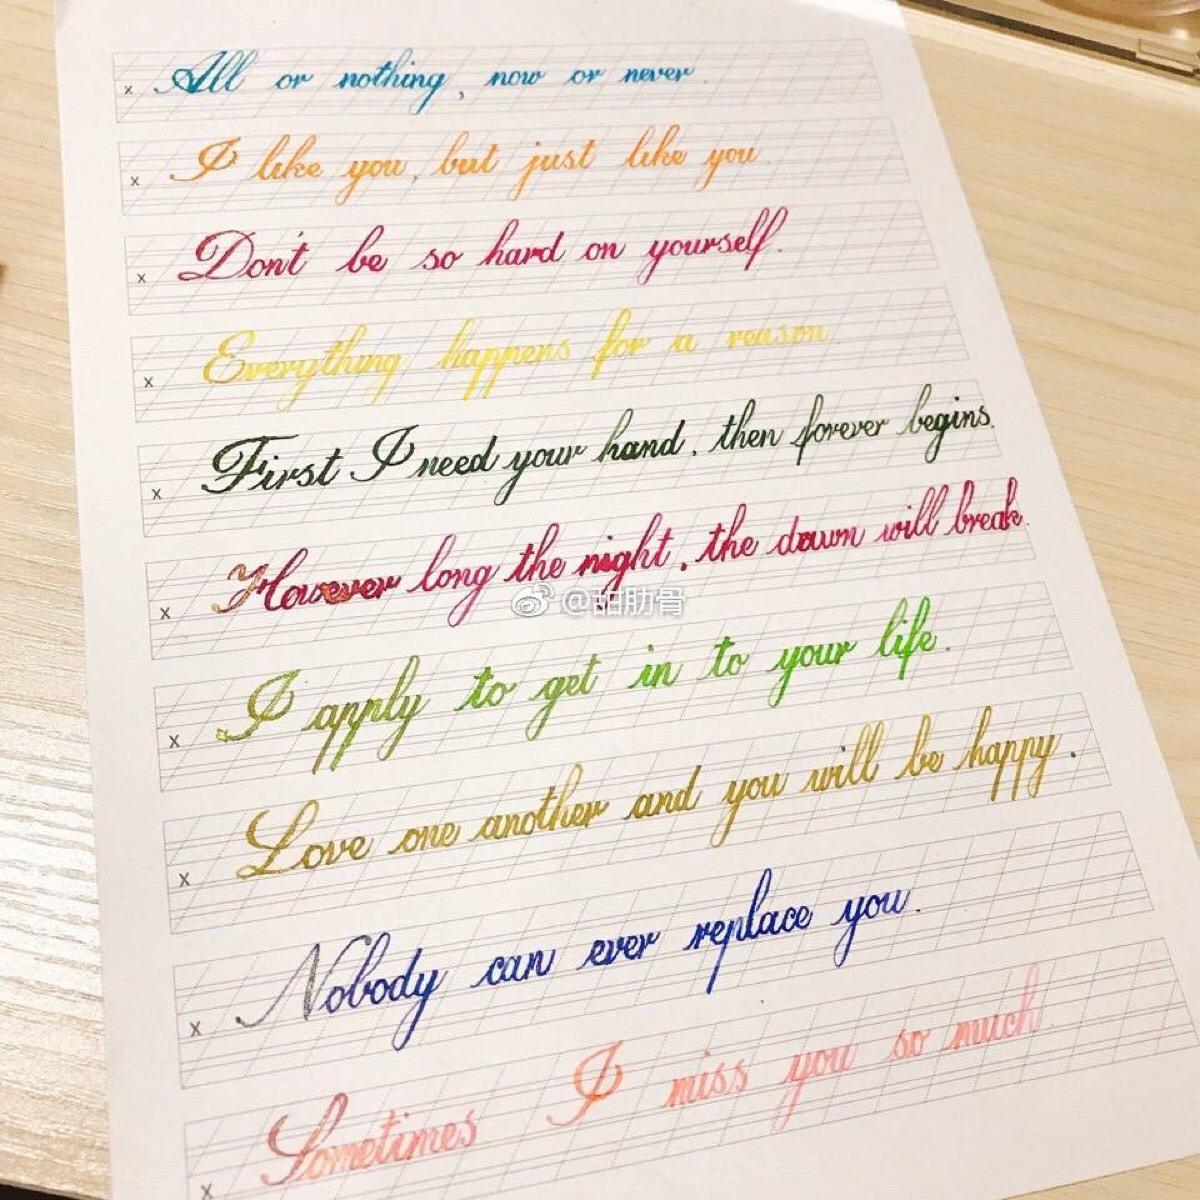 All or nothing, now or never.
I like you, but just like you.
Don't be so hard on yourself.
Everything happens for a reason
First I need your hand, then forever begins.
However long the night, the dawn will break.
@甜肋骨
I apply to get in to your life.
Love one another and you will be happy.
Nobody can ever replace you.
Sometimes I miss you so much.